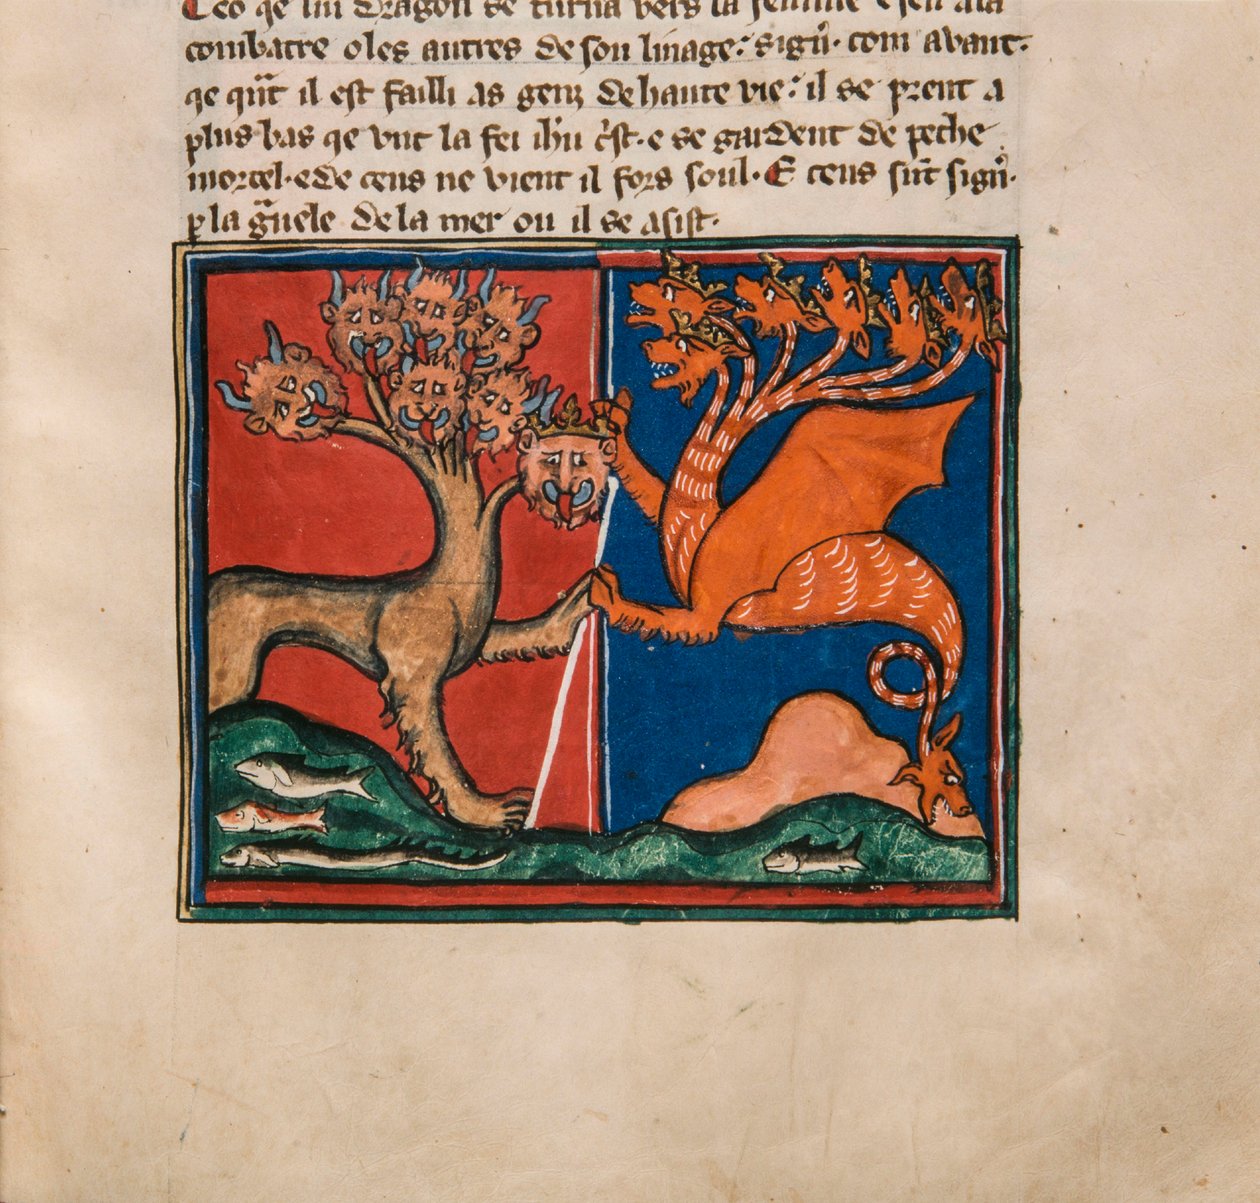 Ceo qe lui dragon se turna vers la femme e sen ala
combatre oles autres de son linage: signͫ. com avant.
qe qͣnt il est failli as genz de haute vie: il se prent a
plus bas qe unt la fei ihu cst. e se gardent de peche
mortel. e de ceus ne vient il fors soul. E ceus sunt signͫ.
p la gͣuele de la mer ou il se asist.